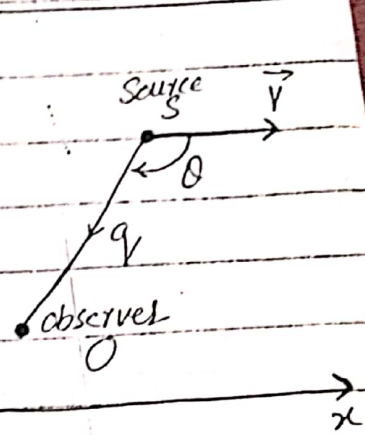 Source
S
V
θ
q
observer
O
x